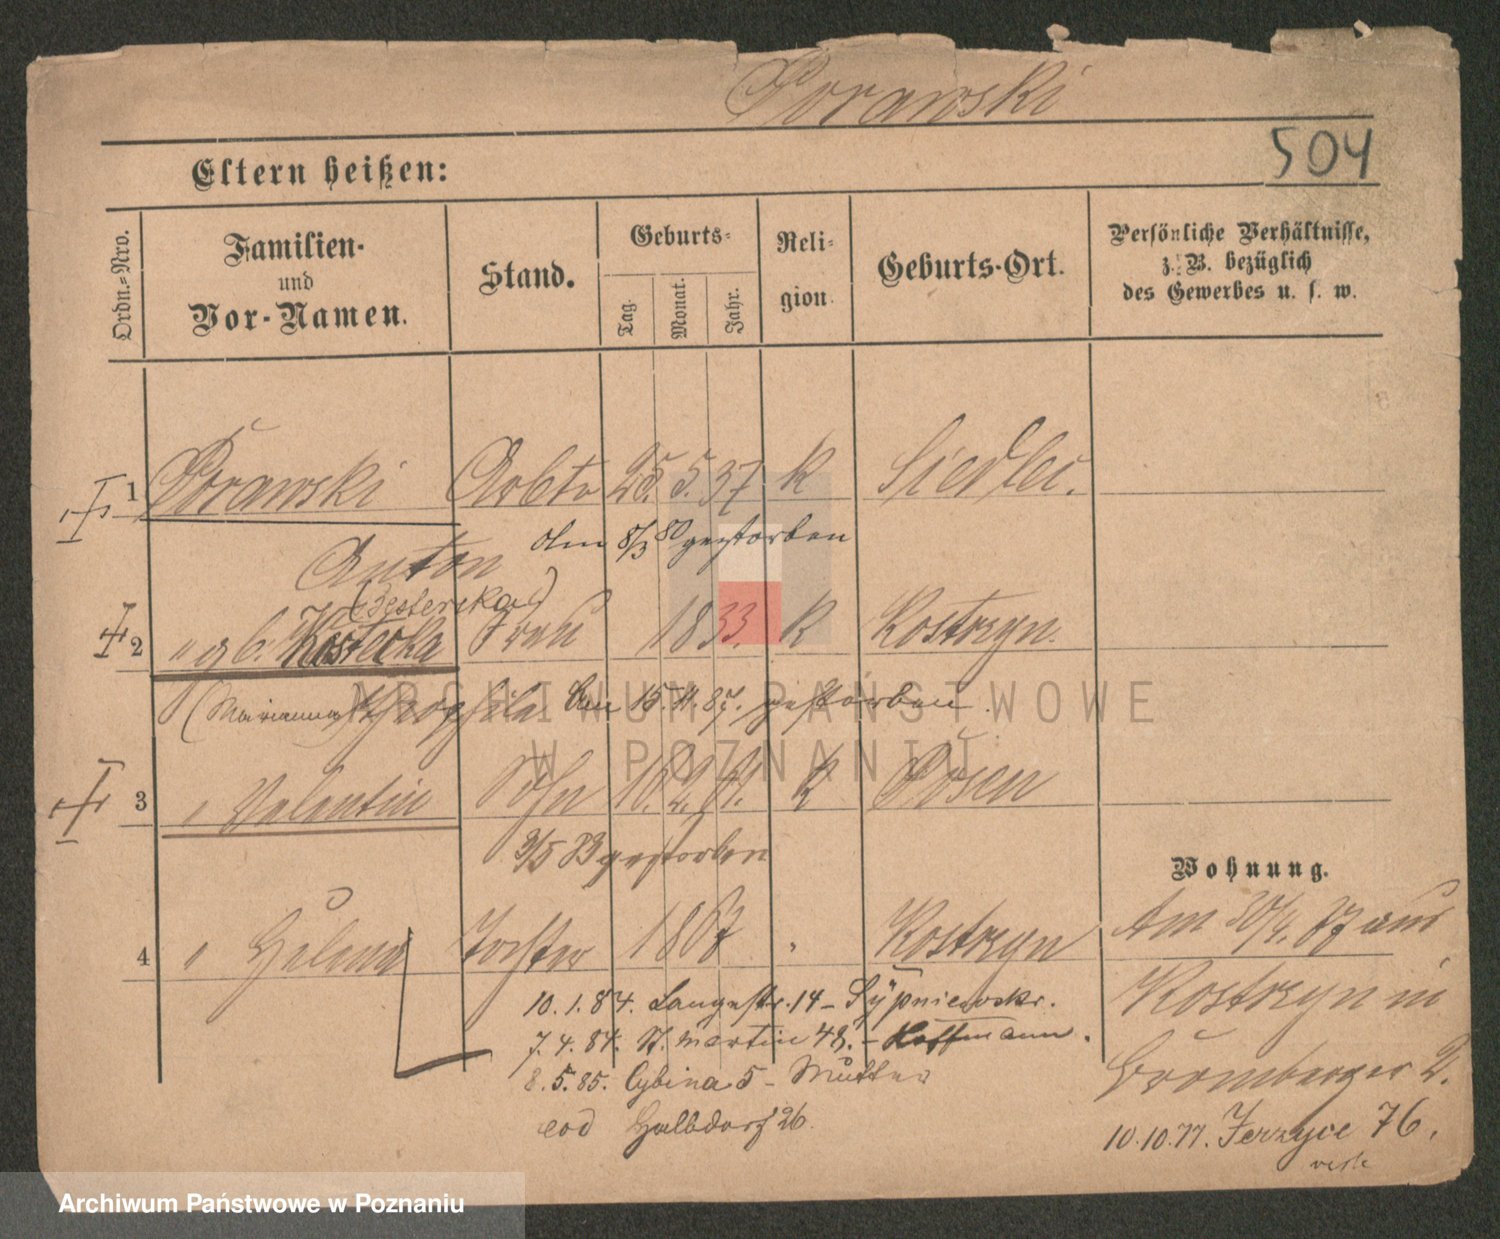 Porawski
504
Eltern heißen:
Ordn.-Nro.
Familien-
und
Vor-Namen.
Stand.
Geburts-
Tag.
Monat.
Jahr.
Reli-
gion
Geburts-Ort.
Persönliche Verhältnisse,
z. B. bezüglich
des Gewerbes u. s. w.
1 Porawski Arbtr 25. 5. 37 K Siedlec.
Anton am 8/3 80 gestorben
2 " geb. Kostecka Frau 1833. K Kostrzyn.
(Marianna) Theophila den 15.11.87. gestorben.
3 " Valentin Sohn 10. 2. 61. K Posen
3/5 83 gestorben
Wohnung.
4 " Helena Tochter 1867 " Kostrzyn
Am 30/4. 77 aus
Kostrzyn in
Bromberger 2.
10.10.77. Jerzyce 76.
10.1.84. Langestr. 14 - Sypniewski.
7.4.84. St. Martin 48. - Hoffmann.
8.5.85. Cybina 5 - Mutter
eod Halbdorf 26.
ARCHIWUM PAŃSTWOWE
W POZNANIU
Archiwum Państwowe w Poznaniu